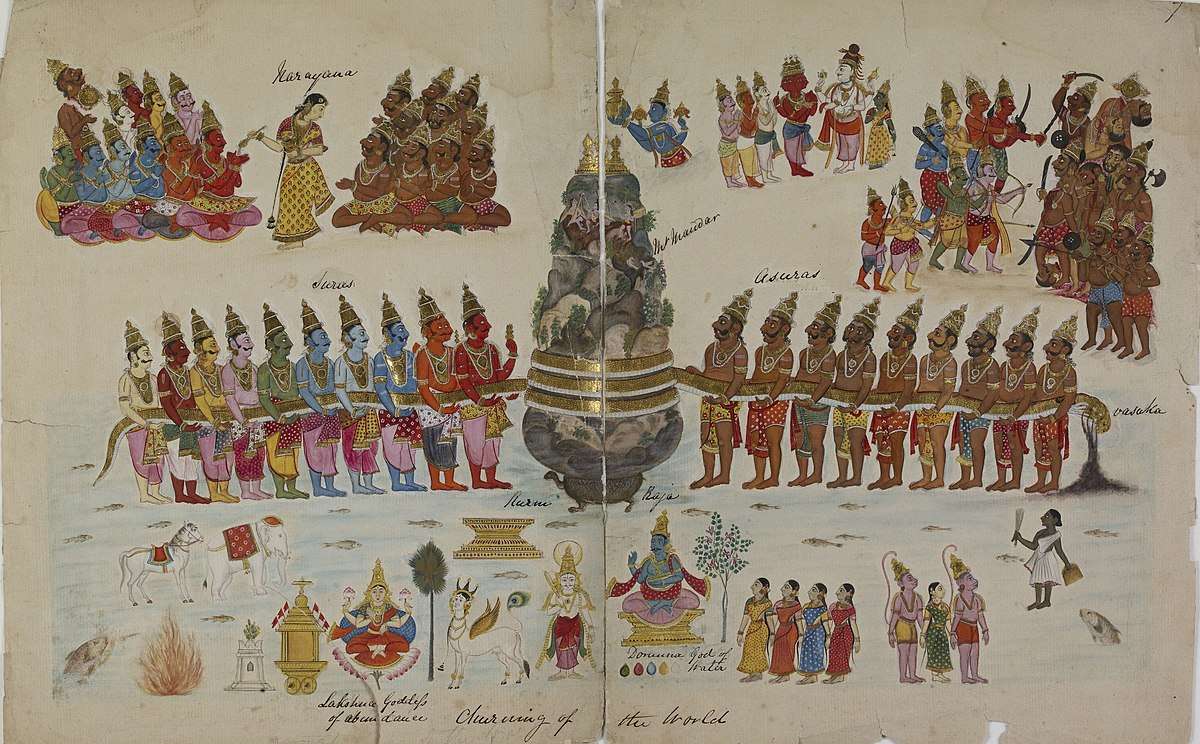 Narayana
Mt Mandar
Suras
Asuras
Vasuka
Kurm Raja
Lakshme Goddess
of abundance
God of
Water
Churning of the World